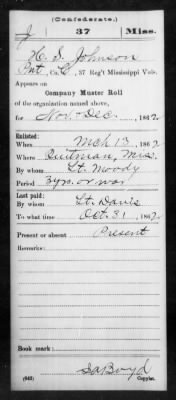 (Confederate.)
J 37 Miss.
H. S. Johnson
Pvt, Co. C, 37 Reg't Mississippi Vols.
Appears on
Company Muster Roll
of the organization named above,
for Nov. & Dec., 1862
Enlisted:
When Mch 13, 1862
Where Quitman, Miss.
By whom Lt. Moody
Period 3 yrs. or war
Last paid:
By whom Lt. Davis
To what time Oct. 31, 1862.
Present or absent Present
Remarks:
Book mark:
(642) Copyist.